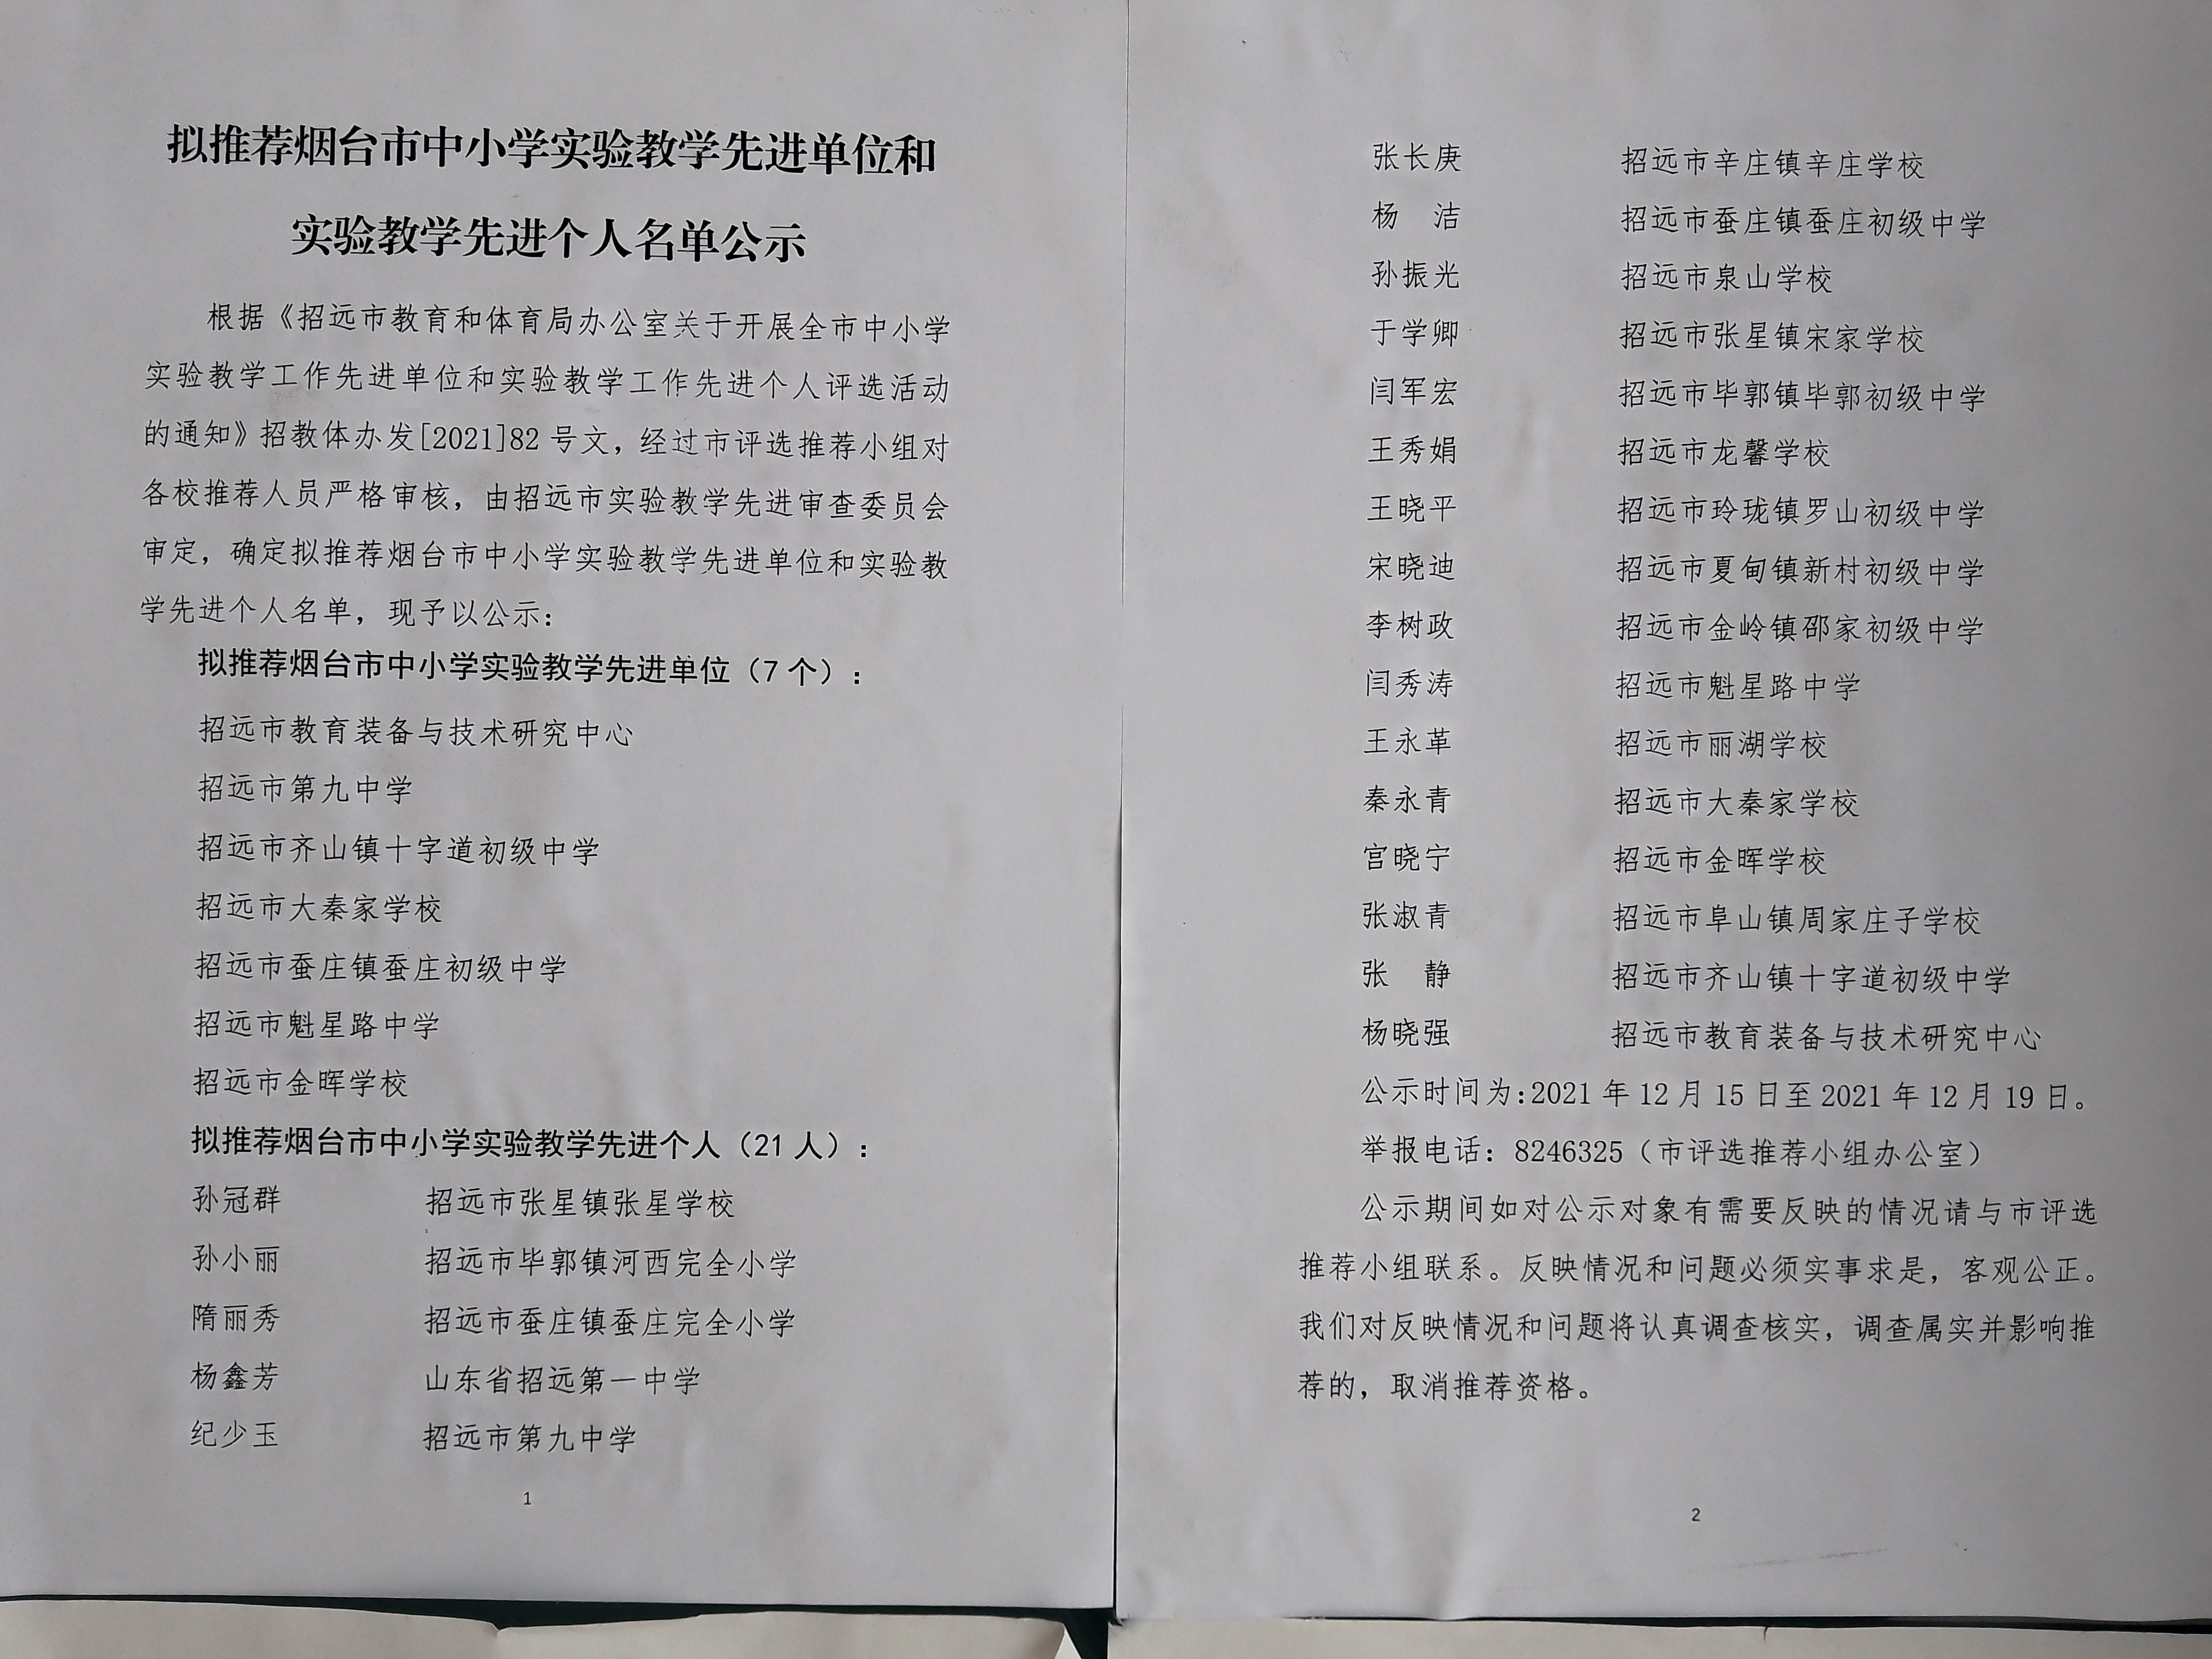 拟推荐烟台市中小学实验教学先进单位和
实验教学先进个人名单公示
根据《招远市教育和体育局办公室关于开展全市中小学
实验教学工作先进单位和实验教学工作先进个人评选活动
的通知》招教体办发[2021]82 号文，经过市评选推荐小组对
各校推荐人员严格审核，由招远市实验教学先进审查委员会
审定，确定拟推荐烟台市中小学实验教学先进单位和实验教
学先进个人名单，现予以公示：
拟推荐烟台市中小学实验教学先进单位（7 个）：
招远市教育装备与技术研究中心
招远市第九中学
招远市齐山镇十字道初级中学
招远市大秦家学校
招远市蚕庄镇蚕庄初级中学
招远市魁星路中学
招远市金晖学校
拟推荐烟台市中小学实验教学先进个人（21 人）：
孙冠群 招远市张星镇张星学校
孙小丽 招远市毕郭镇河西完全小学
隋丽秀 招远市蚕庄镇蚕庄完全小学
杨鑫芳 山东省招远第一中学
纪少玉 招远市第九中学
1
张长庚 招远市辛庄镇辛庄学校
杨 洁 招远市蚕庄镇蚕庄初级中学
孙振光 招远市泉山学校
于学卿 招远市张星镇宋家学校
闫军宏 招远市毕郭镇毕郭初级中学
王秀娟 招远市龙馨学校
王晓平 招远市玲珑镇罗山初级中学
宋晓迪 招远市夏甸镇新村初级中学
李树政 招远市金岭镇邵家初级中学
闫秀涛 招远市魁星路中学
王永革 招远市丽湖学校
秦永青 招远市大秦家学校
宫晓宁 招远市金晖学校
张淑青 招远市阜山镇周家庄子学校
张 静 招远市齐山镇十字道初级中学
杨晓强 招远市教育装备与技术研究中心
公示时间为:2021 年 12 月 15 日至 2021 年 12 月 19 日。
举报电话：8246325（市评选推荐小组办公室）
公示期间如对公示对象有需要反映的情况请与市评选
推荐小组联系。反映情况和问题必须实事求是，客观公正。
我们对反映情况和问题将认真调查核实，调查属实并影响推
荐的，取消推荐资格。
2